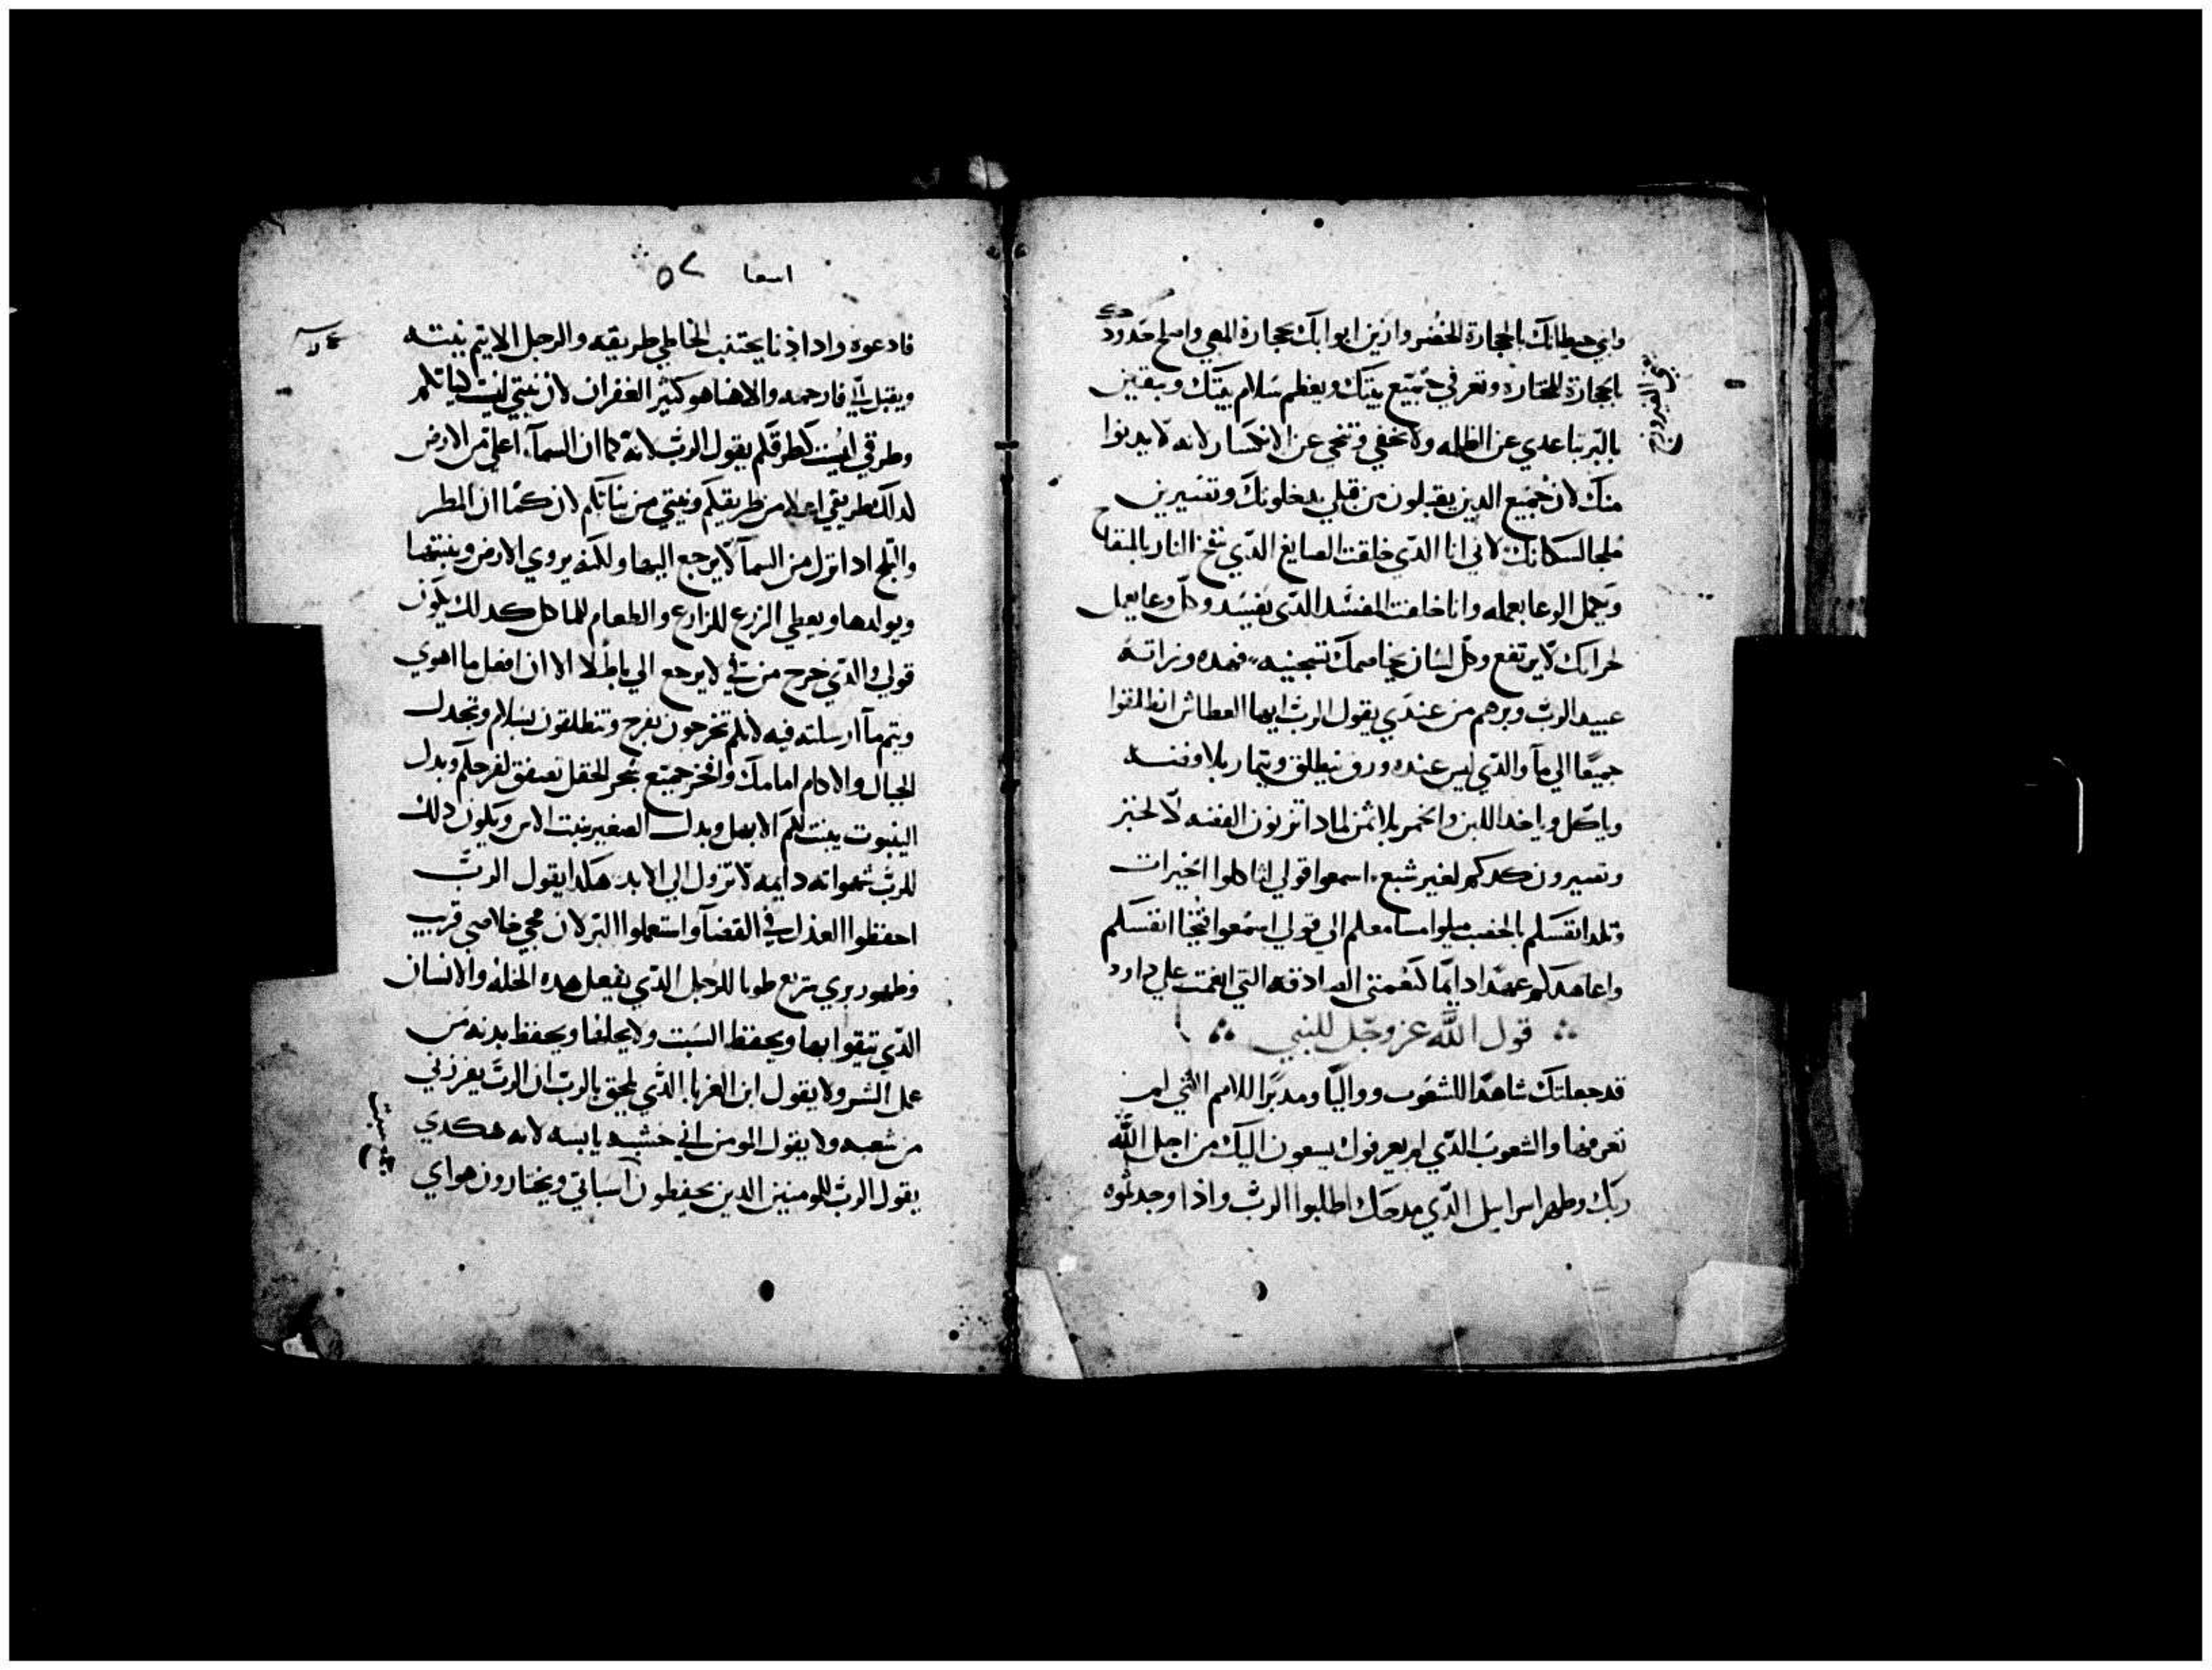 وابني حيطانك بالحجارة الخضر وازين ابوابك بحجارة المهي واصلح حدودك
بالحجارة المختاره وتعرفي جميع بنيك ويعظم سلام بنيك وتبقين
بالبر تباعدي عن الظلمه ولا تخفي وتنجي عن الانكسار لانه لا يدنوا
منك لان جميع الدين يقبلون من قبلي يدخلونك وتصيرين
ملجا لسكانك لاني انا الدي خلقت الصايغ الدي نفخ النار بالمنفاخ
ويحمل الوعا بعمله وانا خلقت المفسد الدي يفسد وكل وعا يعمل
لخرابك لا يرتفع وكل لسان يخاصمك تشجبيه فهده وراثة
عبيد الرب وبرهم من عندي يقول الرب ايها العطاش انطلقوا
جميعا الي ما والدي ليس عنده ورق ينطلق ويمتار بلا فضه
وياكل وياخد اللبن والخمر بلا ثمن لمادا تزنون الفضه لا لخبز
وتصيرون كدكم لغير شبع اسمعوا قولي لتاكلوا الخيرات
وتلد انفسكم بالخصب ميلوا مسامعكم الي قولي اسمعوا فتحيا انفسكم
واعاهدكم عهدا دايما كنعمتي الصادقه التي انعمت علي داود
قول الله عز وجل للنبي
قد جعلتك شاهدا للشعوب وواليا ومدبرا للامم التي لم
تعرفها والشعوب الدي لم يعرفوك يسعون اليك من اجل الله
ربك وطهر اسراييل الدي مدحك اطلبوا الرب واذا وجدتموه
الفيروزج
اسعيا ٥٧
فادعوه وادا دنا يجتنب الخاطي طريقه والرجل الاتيم نيته
ويقبل الي فارحمه والاهنا هو كثير الغفران لان نيتي ليست كنياتكم
وطرقي ليست كطرقكم يقول الرب لانه كما ان السماء اعلي من الارض
لدلك طريقي اعلا من طريقكم ونيتي من نياتكم لان كما ان المطر
والثلج ادا نزل من السما لا يرجع اليها ولكنه يروي الارض وينبتها
ويولدها ويعطي الزرع للزارع والطعام للماكل كدلك يكون
قولي الدي خرج من في لا يرجع الي باطلا الا ان افعل ما اهوي
ويتم ما ارسلته فيه لانكم تخرجون بفرح وتنطلقون بسلام وتجدل
الجبال والاكام امامك وافخر جميع شجر الحقل تصفق لفرحكم وبدل
الينبوت ينبت لكم الابهل وبدل الصغير ينبت الاس ويكون دلك
للرب شهوا انه دايمه لا تزول الي الابد هكدا يقول الرب
احفظوا العدل في القضا واستعملوا البر لان مجي خلاصي قريب
وظهور بري سريع طوبا للرجل الدي يفعل هده الخله والانسان
الدي يتقوا بها ويحفظ السبت ولا يحلها ويحفظ بدنه من
عمل الشر ولا يقول ابن الغربا الدي لحق بالرب ان الرب يفرزني
من شعبه ولا يقول المومن اني خشبه يابسه لانه هكدي
يقول الرب للمومنين الدين يحفظون اسباتي ويختارون هواي